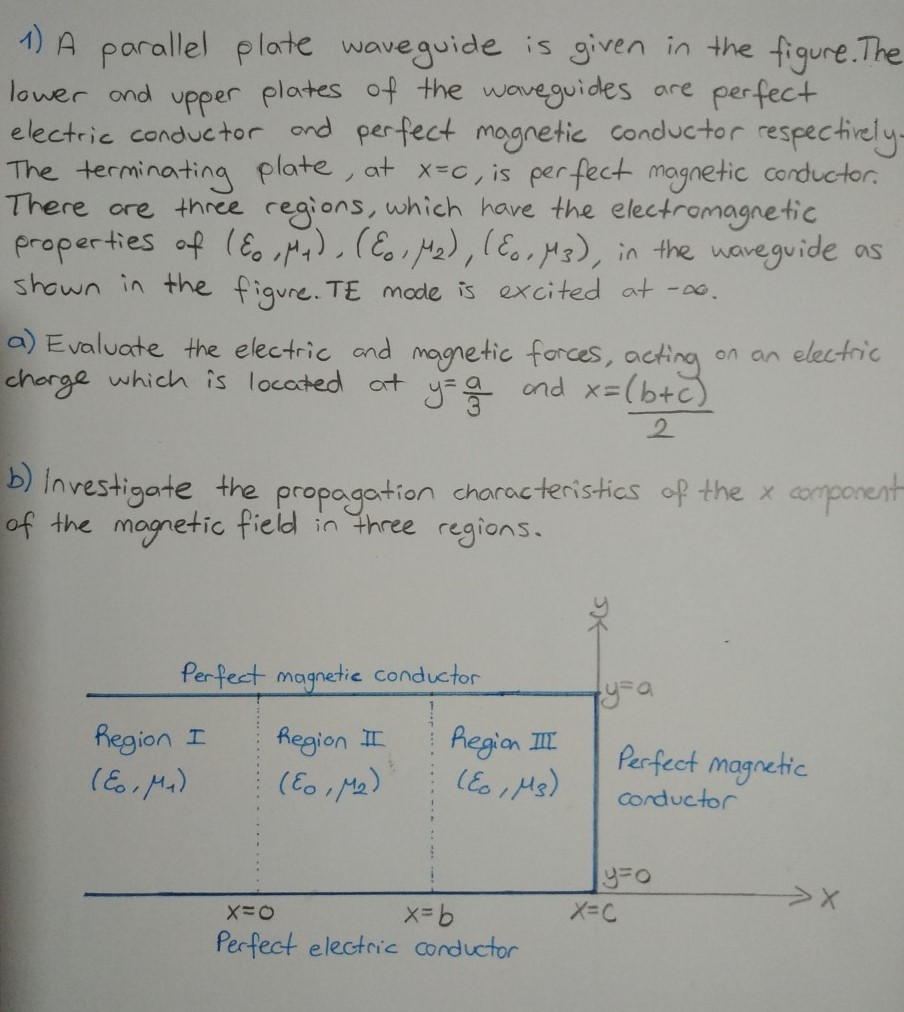 1) A parallel plate waveguide is given in the figure. The
lower and upper plates of the waveguides are perfect
electric conductor and perfect magnetic conductor respectively.
The terminating plate, at x=c, is perfect magnetic conductor.
There are three regions, which have the electromagnetic
properties of (ε₀, μ₁), (ε₀, μ₂), (ε₀, μ₃), in the waveguide as
shown in the figure. TE mode is excited at -∞.
a) Evaluate the electric and magnetic forces, acting on an electric
charge which is located at y=a/3 and x=(b+c)/2
b) Investigate the propagation characteristics of the x component
of the magnetic field in three regions.
y
Perfect magnetic conductor
y=a
Region I
Region II
Region III
(ε₀, μ₁)
(ε₀, μ₂)
(ε₀, μ₃)
Perfect magnetic
conductor
y=0
x
x=0
x=b
x=c
Perfect electric conductor